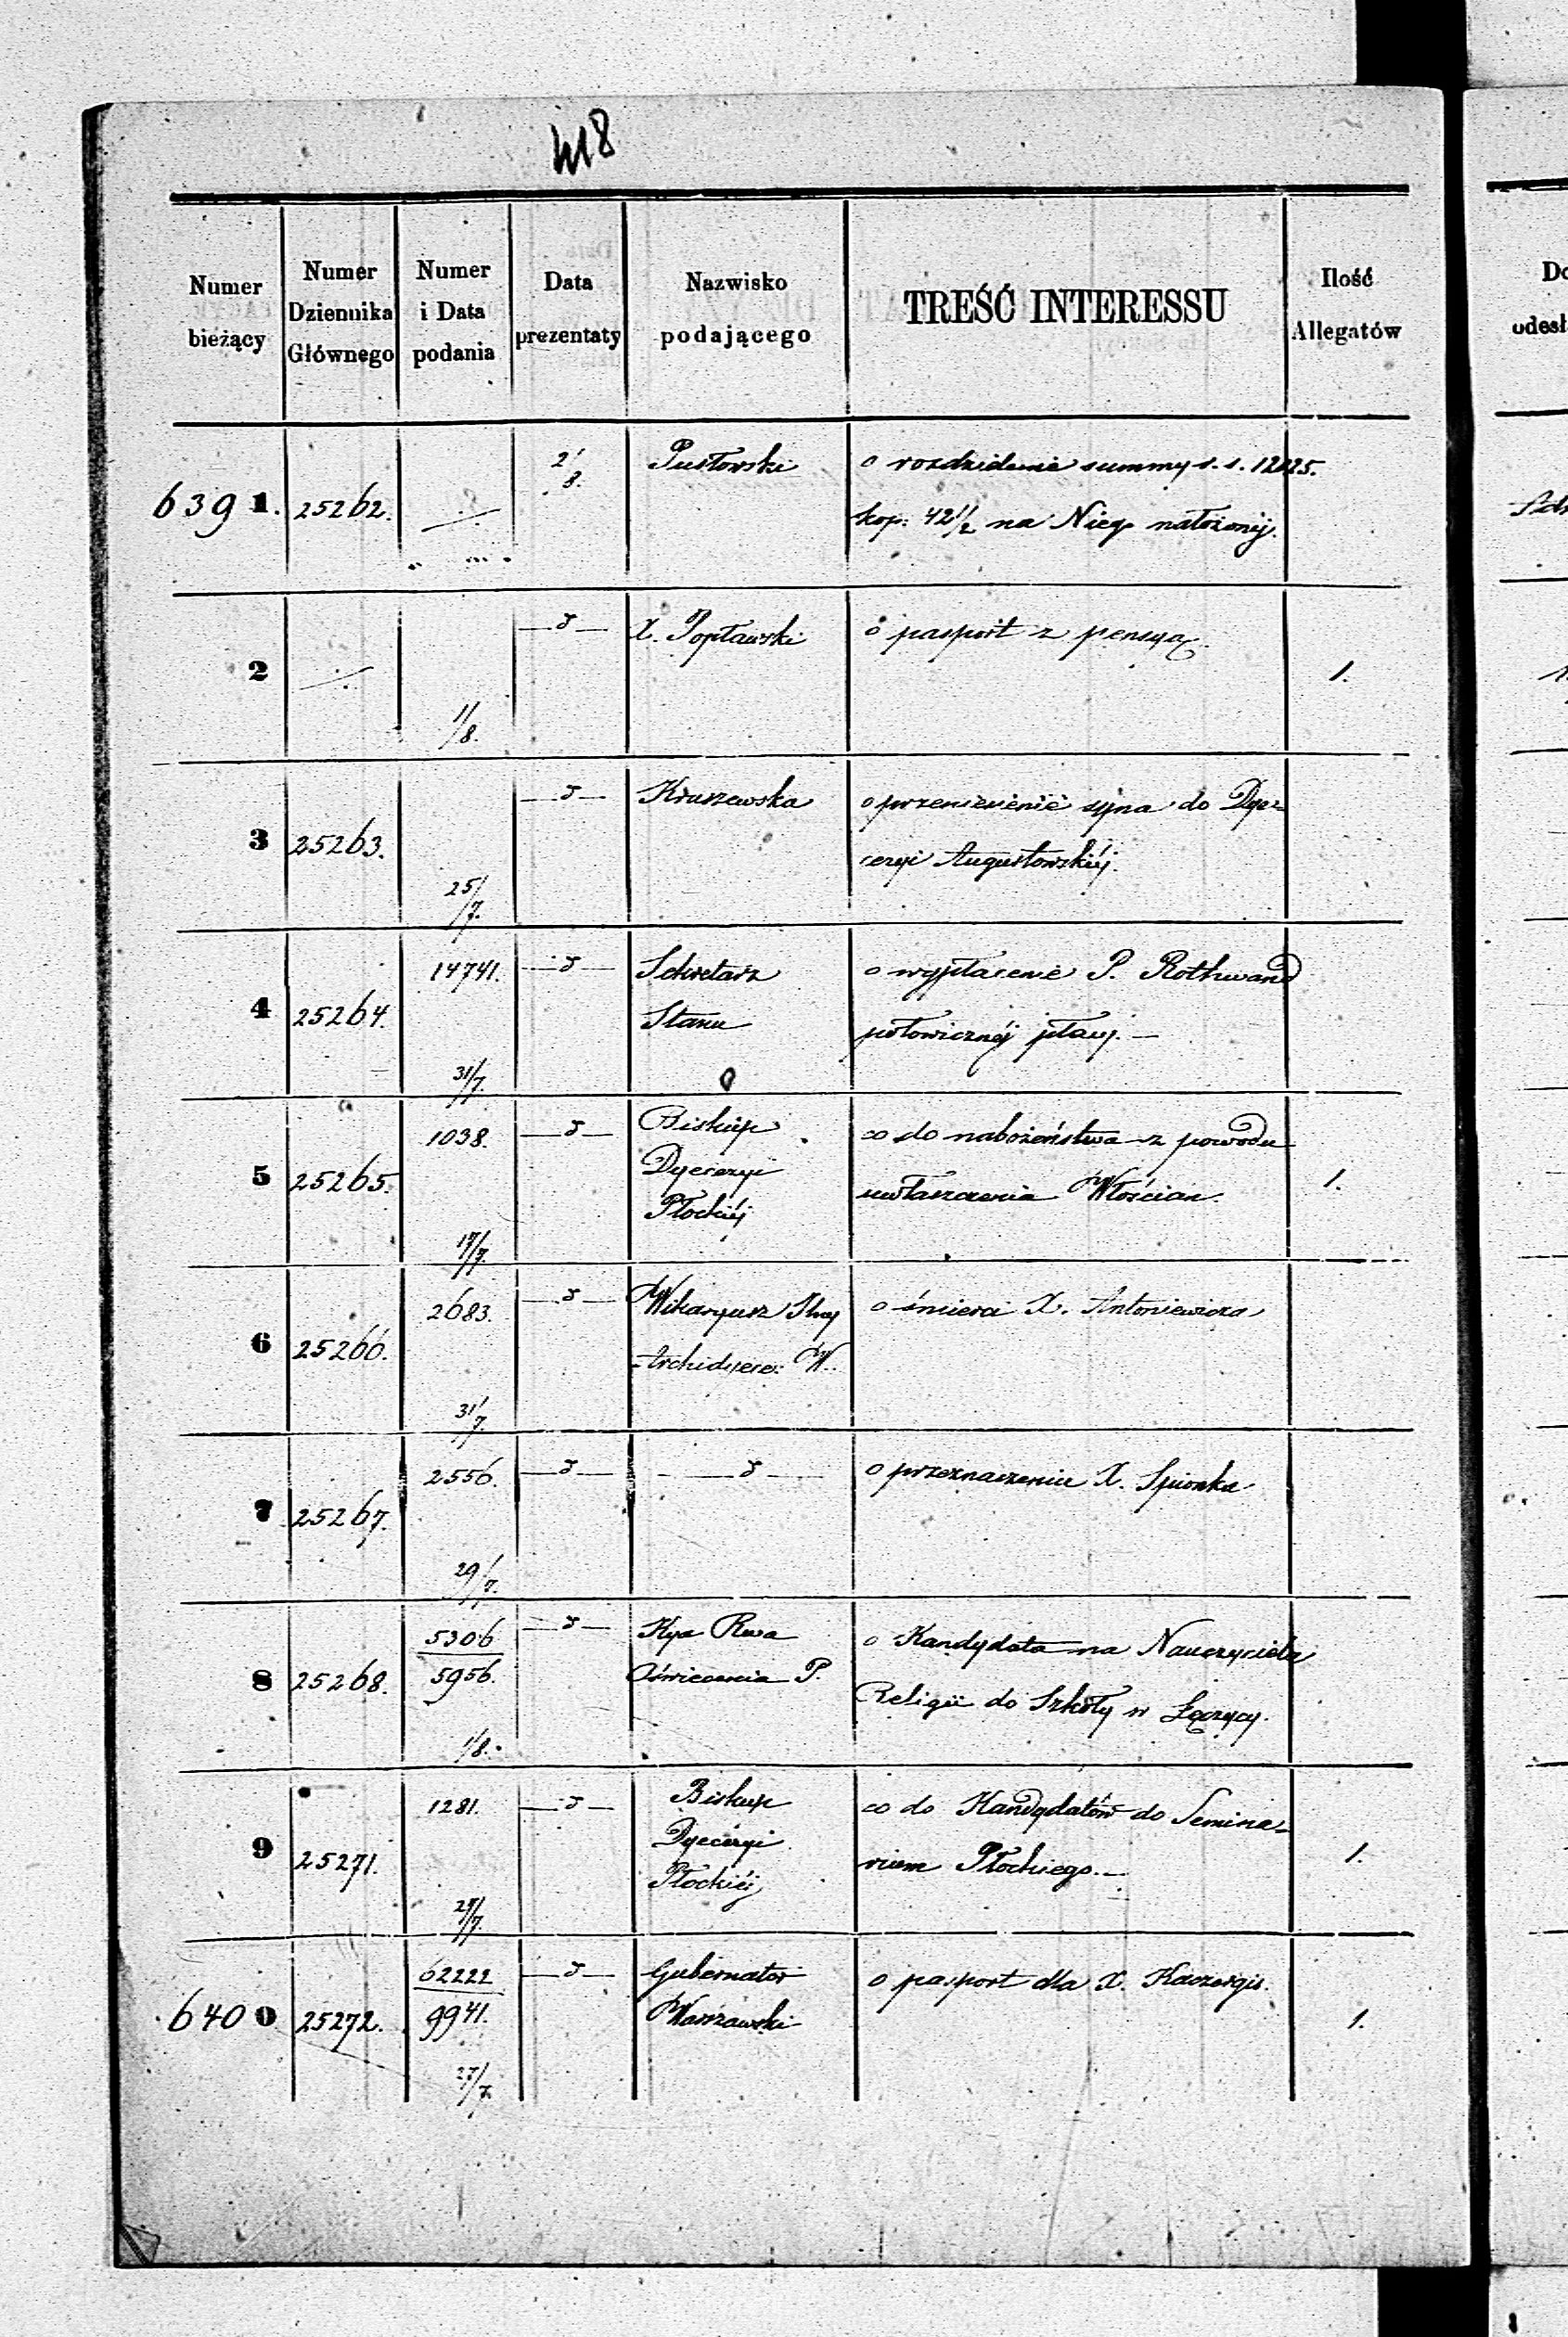 418
Numer bieżący
Numer Dziennika Głównego
Numer i Data podania
Data prezentaty
Nazwisko podającego
TREŚĆ INTERESSU
Ilość Allegatów
6391. 25262. 2/8. Pusłowski o rozdzielenie summy r. s. 12025.
kop: 42 1/2 na Niego nałożonej.
2 1/8. d X. Popławski o pasport z pensyą. 1.
3 25263. 25/7. d Kruszewska o przeniesienie syna do Dye-
cezyi Augustowskiéj.
4 25264. 14741. 31/7. d Sekretarz o wypłacenie P. Rothwand
Stanu połowicznéj płacy. —
5 25265. 1038. 17/7. d Biskup co do nabożeństwa z powodu
Dyecezyi uwłaszczenia Włościan. 1.
Płockiéj
6 25266. 2683. 31/7. d Wikaryusz o śmierci X. Antoniewicza
Archidyece: W.
7 25267. 2556. 29/7. d d o przeznaczeniu X. Spionka
8 25268. 5306 5956. 1/8. d Kya Rwa o Kandydata na Nauczyciela
Oświecenia P. Religii do Szkoły w Łęczycy.
9 25271. 1281. 27/7. d Biskup co do Kandydatów do Semina-
Dyecezyi rium Płockiego. — 1.
Płockiéj
6400 25272. 62222 9941. 27/7. d Gubernator o pasport dla X. Kaczergis. 1.
Warszawski
Do
odesł